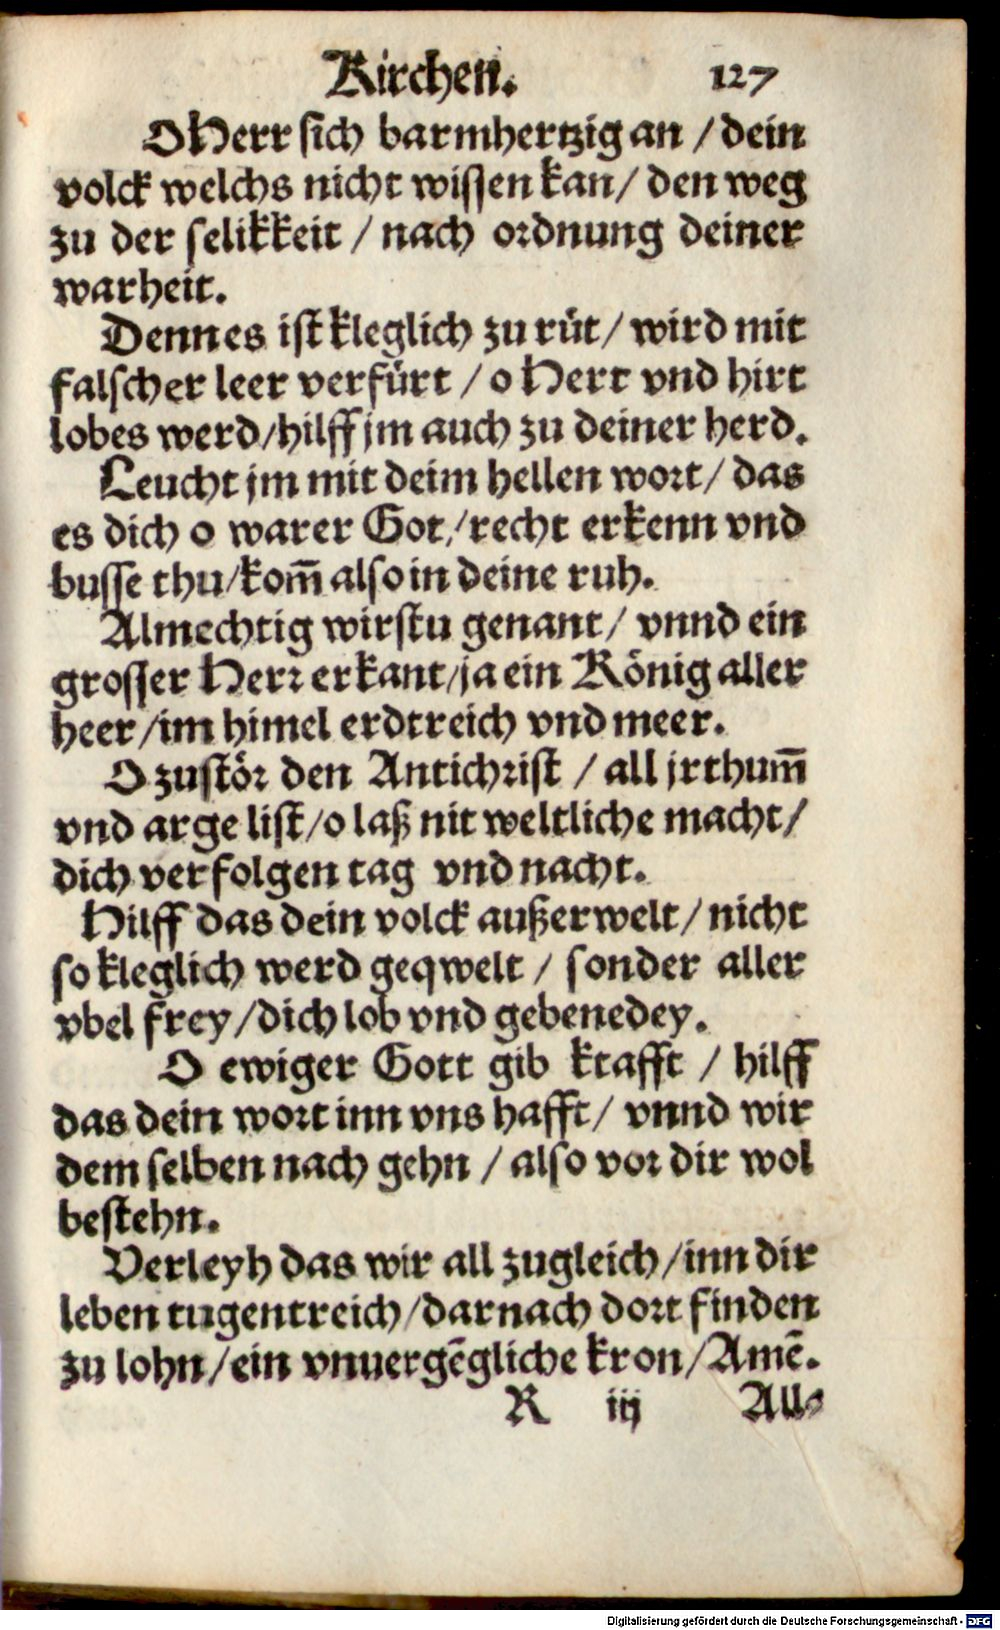 Kirchen. 127
O Herr sich barmhertzig an / dein
volck welchs nicht wissen kan / den weg
zu der selikkeit / nach ordnung deiner
warheit.
Denn es ist kleglich zu rüt / wird mit
falscher leer verfürt / o Herr vnd hirt
lobes werd / hilff jm auch zu deiner herd.
Leucht jm mit deim hellen wort / das
es dich o warer Got / recht erkenn vnd
busse thu / kom̃ also in deine ruh.
Almechtig wirstu genant / vnnd ein
grosser Herr erkant / ja ein König aller
heer / im himel erdtreich vnd meer.
O zustör den Antichrist / all jrthum̃
vnd arge list / o laß nit weltliche macht /
dich verfolgen tag vnd nacht.
Hilff das dein volck außerwelt / nicht
so kleglich werd geqwelt / sonder aller
vbel frey / dich lob vnd gebenedey.
O ewiger Gott gib krafft / hilff
das dein wort inn vns hafft / vnnd wir
dem selben nach gehn / also vor dir wol
bestehn.
Verleyh das wir all zugleich / inn dir
leben tugentreich / darnach dort finden
zu lohn / ein vnuergẽgliche kron / Amẽ.
R iij All⸗
Digitalisierung gefördert durch die Deutsche Forschungsgemeinschaft - DFG